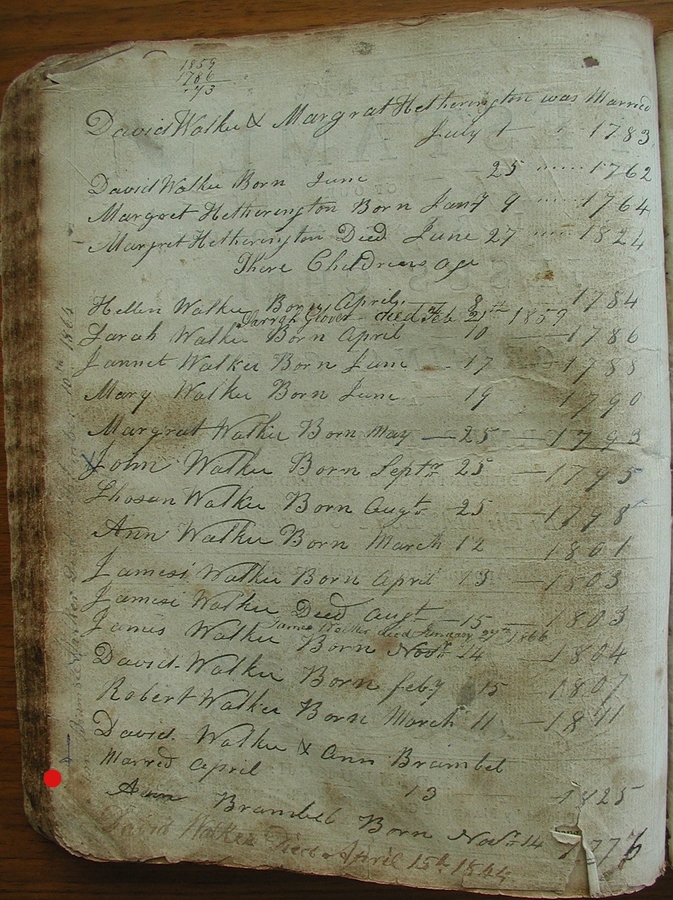 1859
1786
73
David Walker & Margrat Hetherington was Married
July 1 1783
David Walker Born June 25 1762
Margret Hetherington Born Jany 9 1764
Margret Hetherington Died June 27 1824
There Childrens age
Hellen Walker Born April 8 1784
Sarrah Glover died Feb 21th 1859
Sarah Walker Born April 10 1786
Jannet Walker Born June 17 1788
Mary Walker Born June 19 1790
Margrat Walker Born May 25 1793
John Walker Born Septr 25 1795
Walker Born Augt 25 1798
Ann Walker Born March 12 1801
James Walker Born April 13 1803
James Walker Died Augt 15 1803
James Walker died January 27th 1866
James Walker Born Novr 14 1804
David Walker Born feby 15 1807
Robert Walker Born March 11 1811
David Walker & Ann Brambel
Marred April 13 1825
Ann Brambel Born Novr 14 177
David Walker Died April 15th 1864